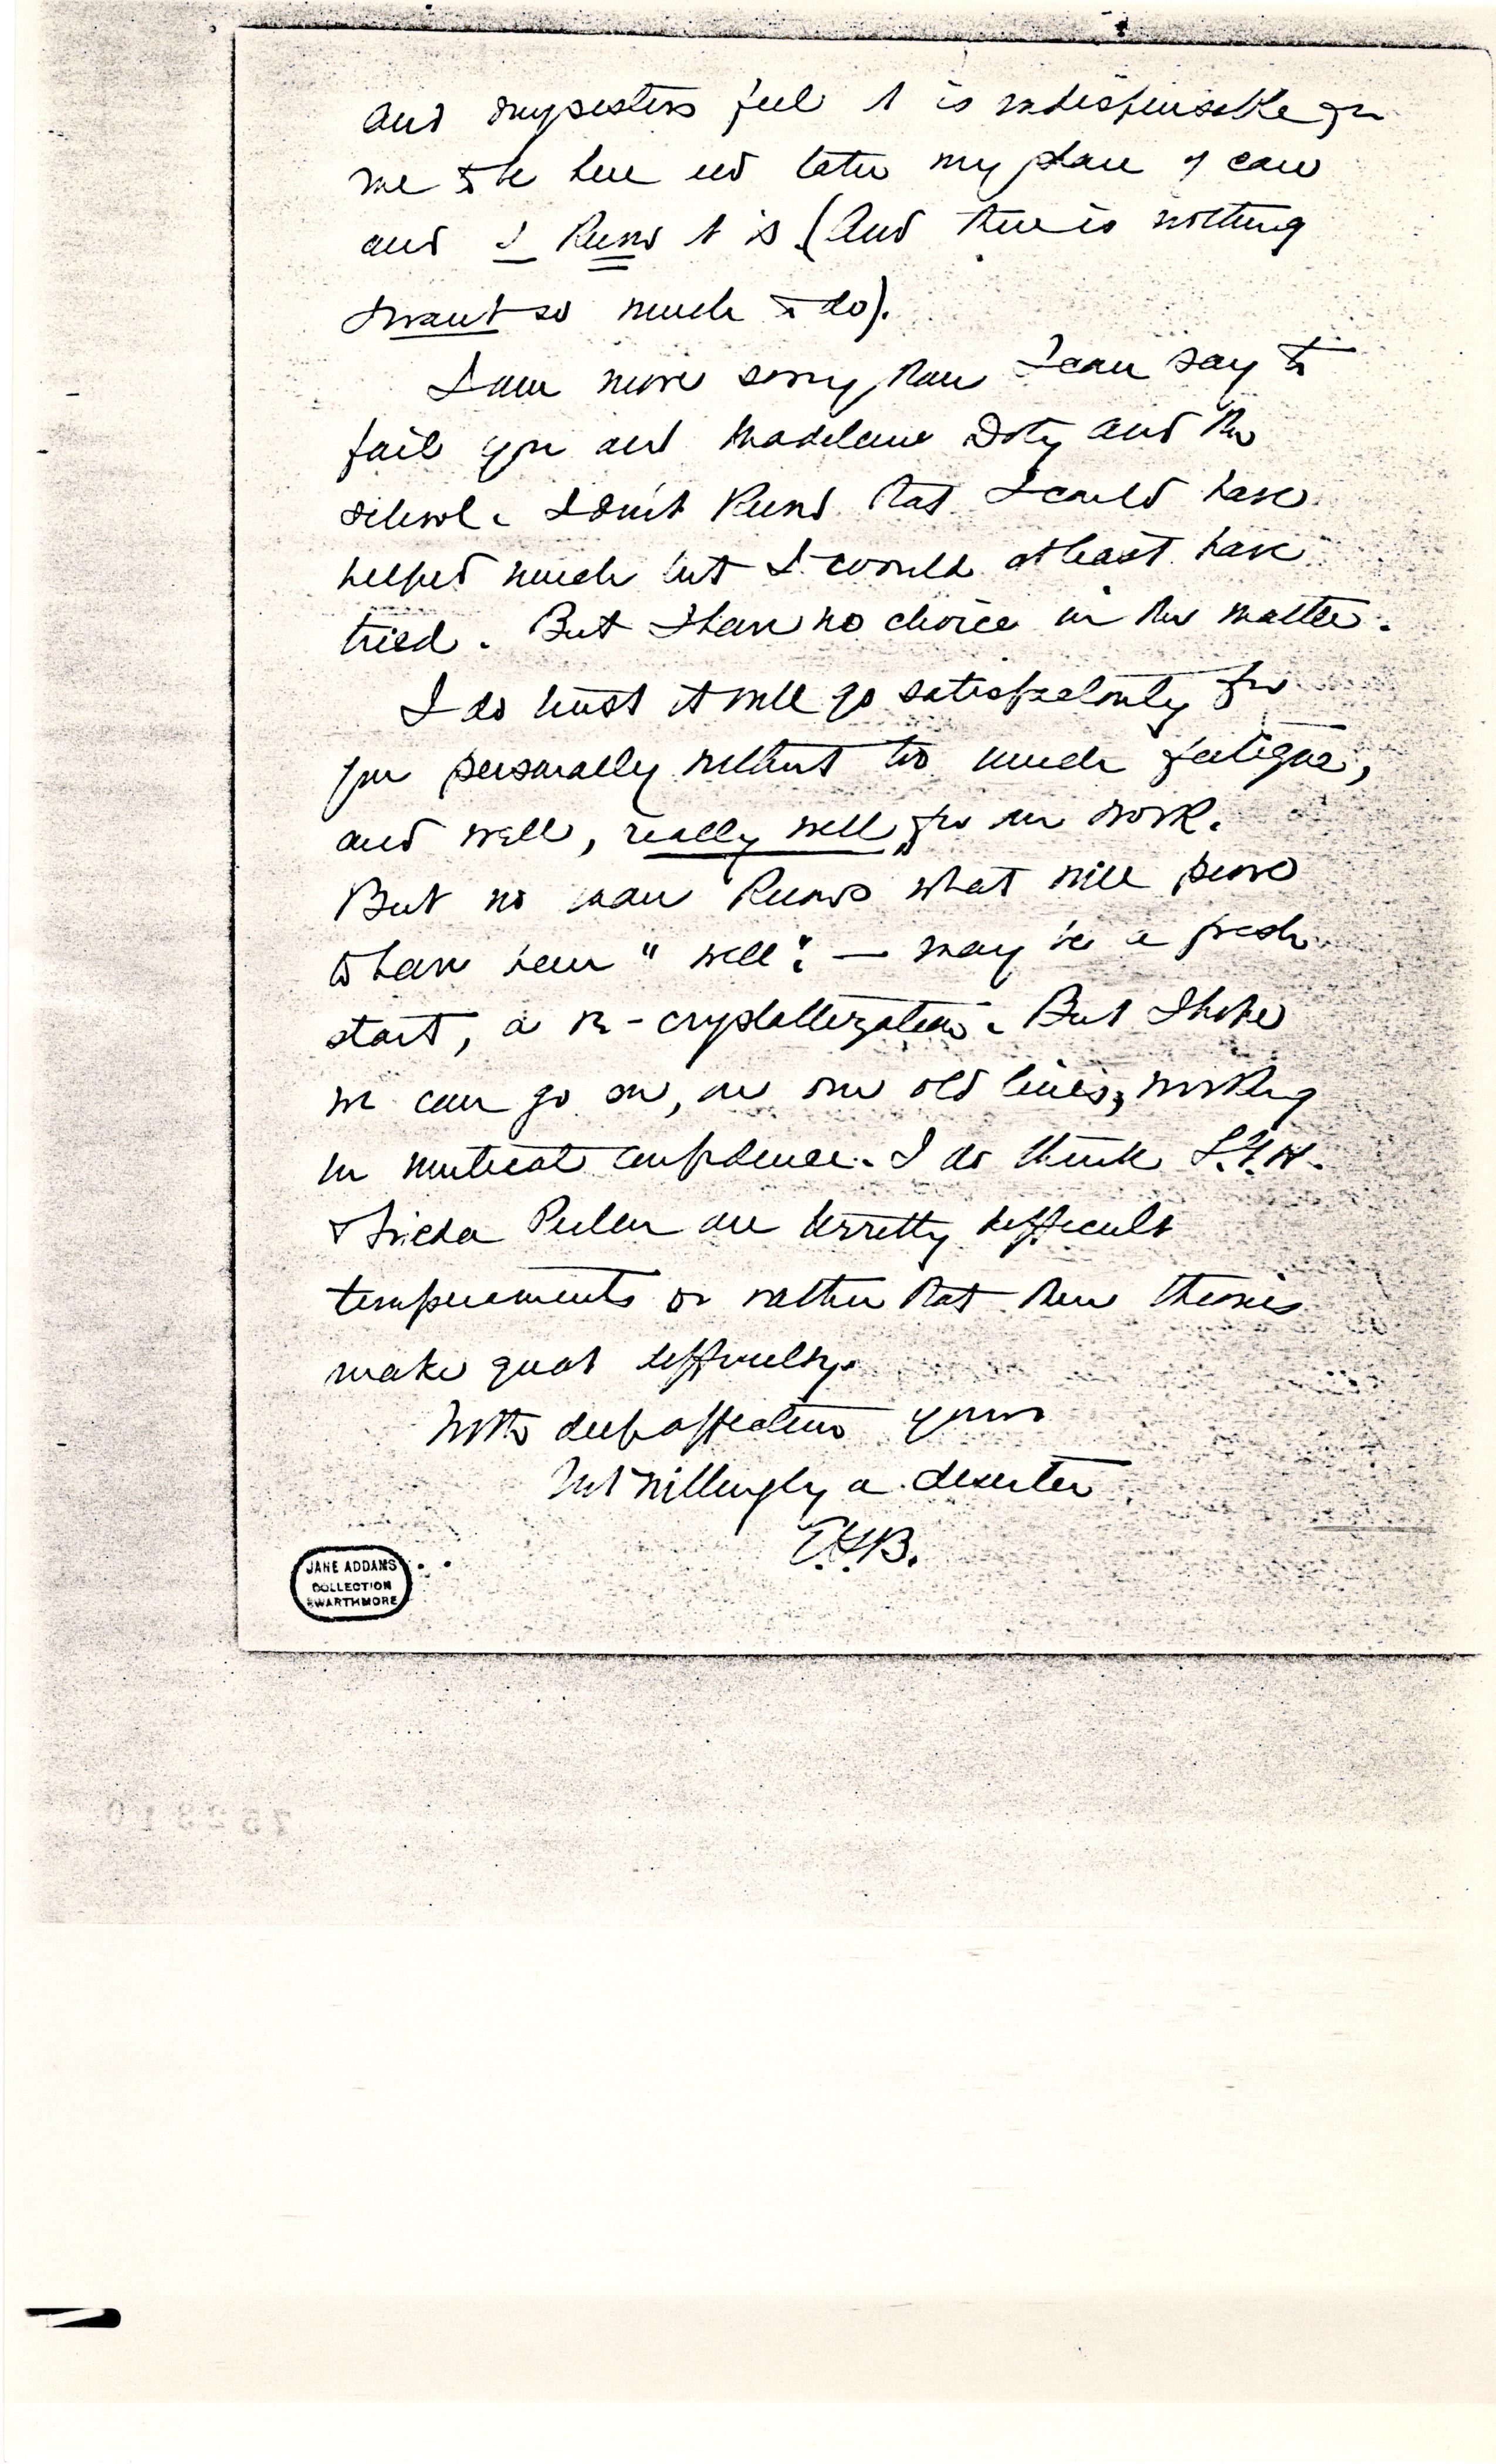 and my sisters feel it is indispensable for
me to be here and later my place of care
and I know it is (And there is nothing
I want so much to do).
I am more sorry than I can say to
fail you and Madeleine Doty and the
school. I don't know that I could have
helped much but I would at least have
tried. But I have no choice in the matter.
I do trust it will go satisfactorily for
you personally without too much fatigue,
and well, really well, for our work.
But no man knows what will prove
to have been "well"; — may be a fresh
start, a re-crystallization. But I hope
we can go on, on our old lines, working
in mutual confidence. I do think
& Frieda Perlen are terribly difficult
temperaments or rather that their theories
make great difficulty.
With deep affection yours
Not willingly a deserter
E.G.B.
JANE ADDAMS
COLLECTION
SWARTHMORE